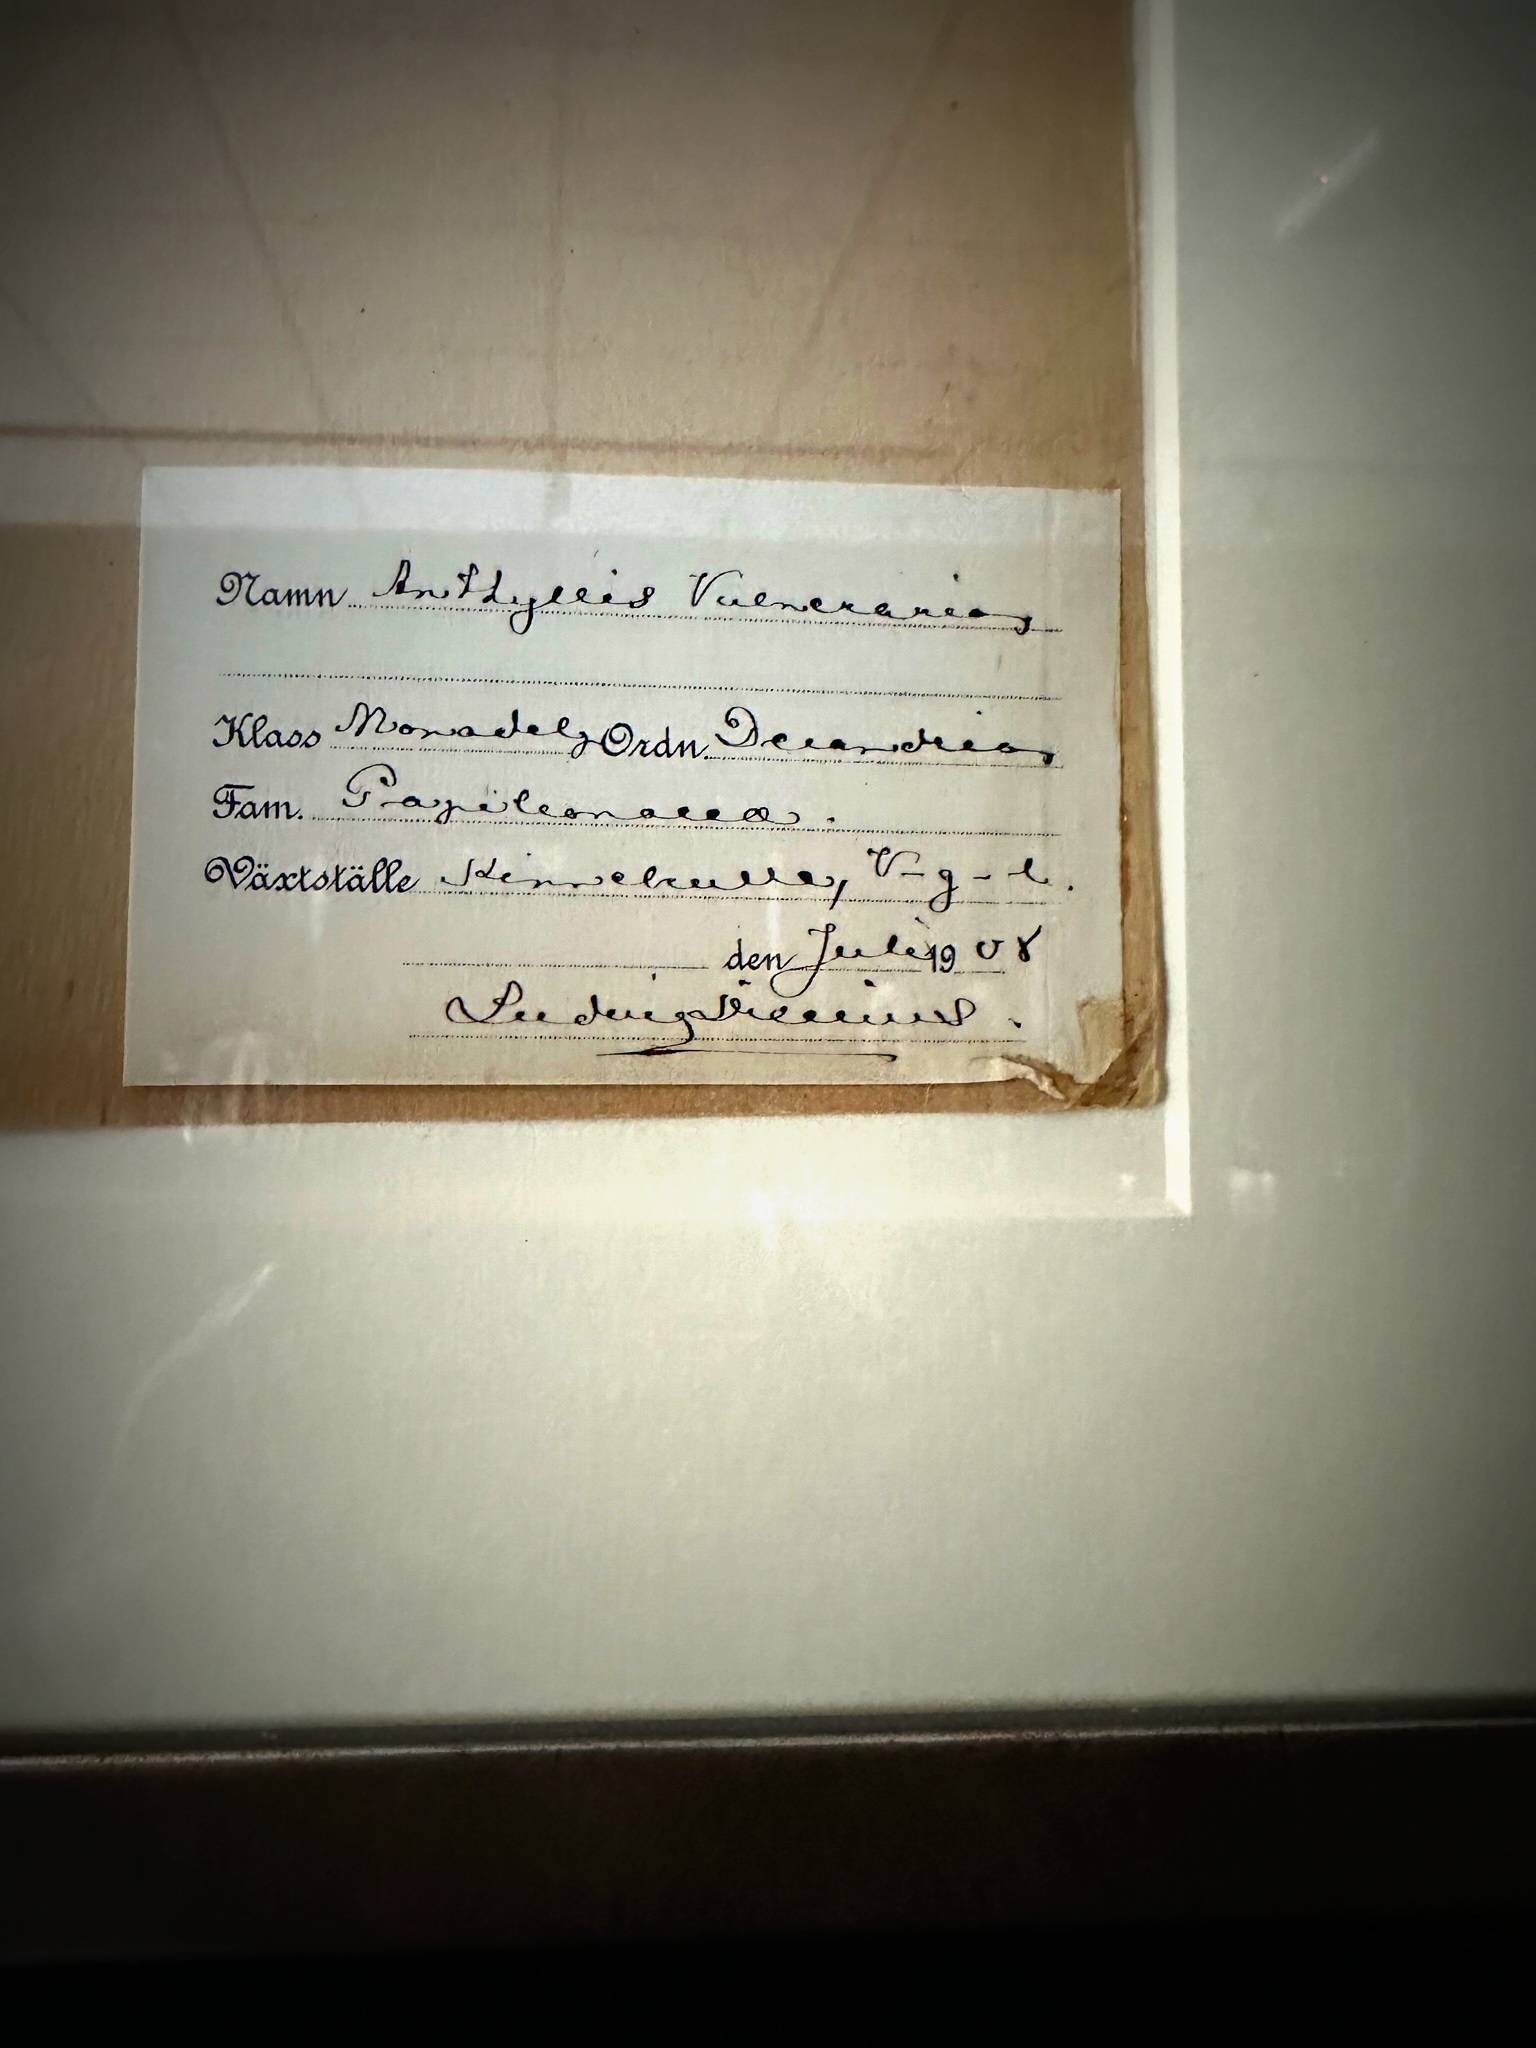 Namn Anthyllis Vulneraria
Klass Monadel Ordn. Decandria
Fam. Papilionaceæ.
Växtställe Kinnekulle, V-g-l.
den Juli 1908
Ludvig